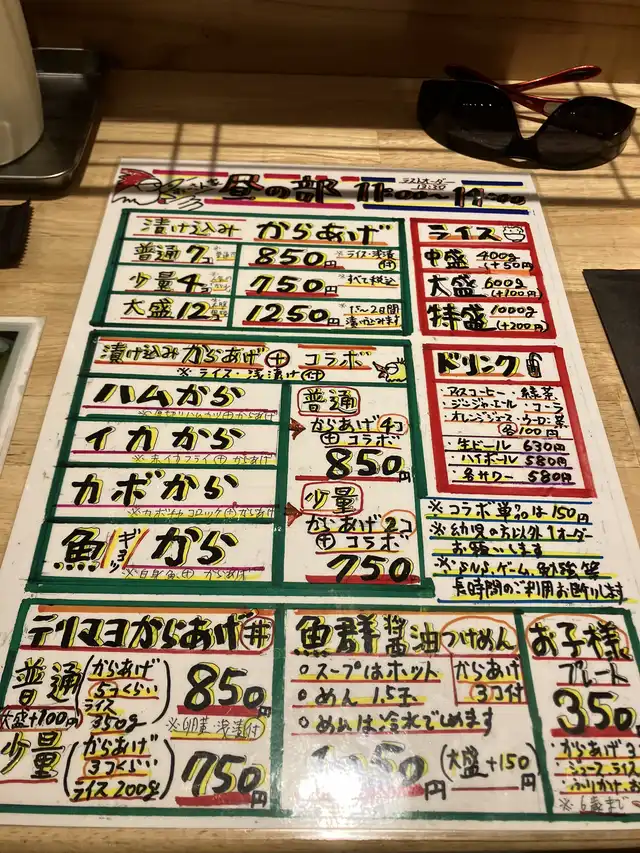 昼の部 11:00〜14:00
ラストオーダー
13:30
漬け込み からあげ
普通 7コ 850円 ※ライス・浅漬付
少量 4コ 750円 ※すべて税込
大盛 12コ 1250円 ※1〜2日間
漬け込みます
ライス
中盛 400g
(+50円)
大盛 600g
(+100円)
特盛 1000g
(+200円)
漬け込み からあげ ㊉ コラボ
※ライス・浅漬け付
ハムから
イカから
カボから
※カボチャコロッケ㊉からあげ
魚から
ギョッ
※白身魚㊉からあげ
普通
からあげ4コ
㊉コラボ
850円
少量
からあげ2コ
㊉コラボ
750円
ドリンク
・アイスコーヒー・緑茶
・ジンジャーエール・コーラ
・オレンジジュース・ウーロン茶
各100円
・生ビール 630円
・ハイボール 580円
・各サワー 580円
※コラボ単品は150円
※幼児の方以外1オーダー
お願いします
※SNS、ゲーム、勉強等
長時間のご利用お断りします
テリマヨからあげ丼
普通 (からあげ
5つくらい
ライス
350g) 850円
大盛+100円
※卵黄・浅漬付
少量 (からあげ
3つくらい
ライス200g) 750円
魚群醤油つけめん
○スープはホット
○めん 1.5玉
○めんは冷水でしめます
からあげ
3コ付
50円 (大盛+150円)
お子様
プレート
350円
・からあげ2
・ジュース・ライス
・ふりかけ・お
※6歳まで